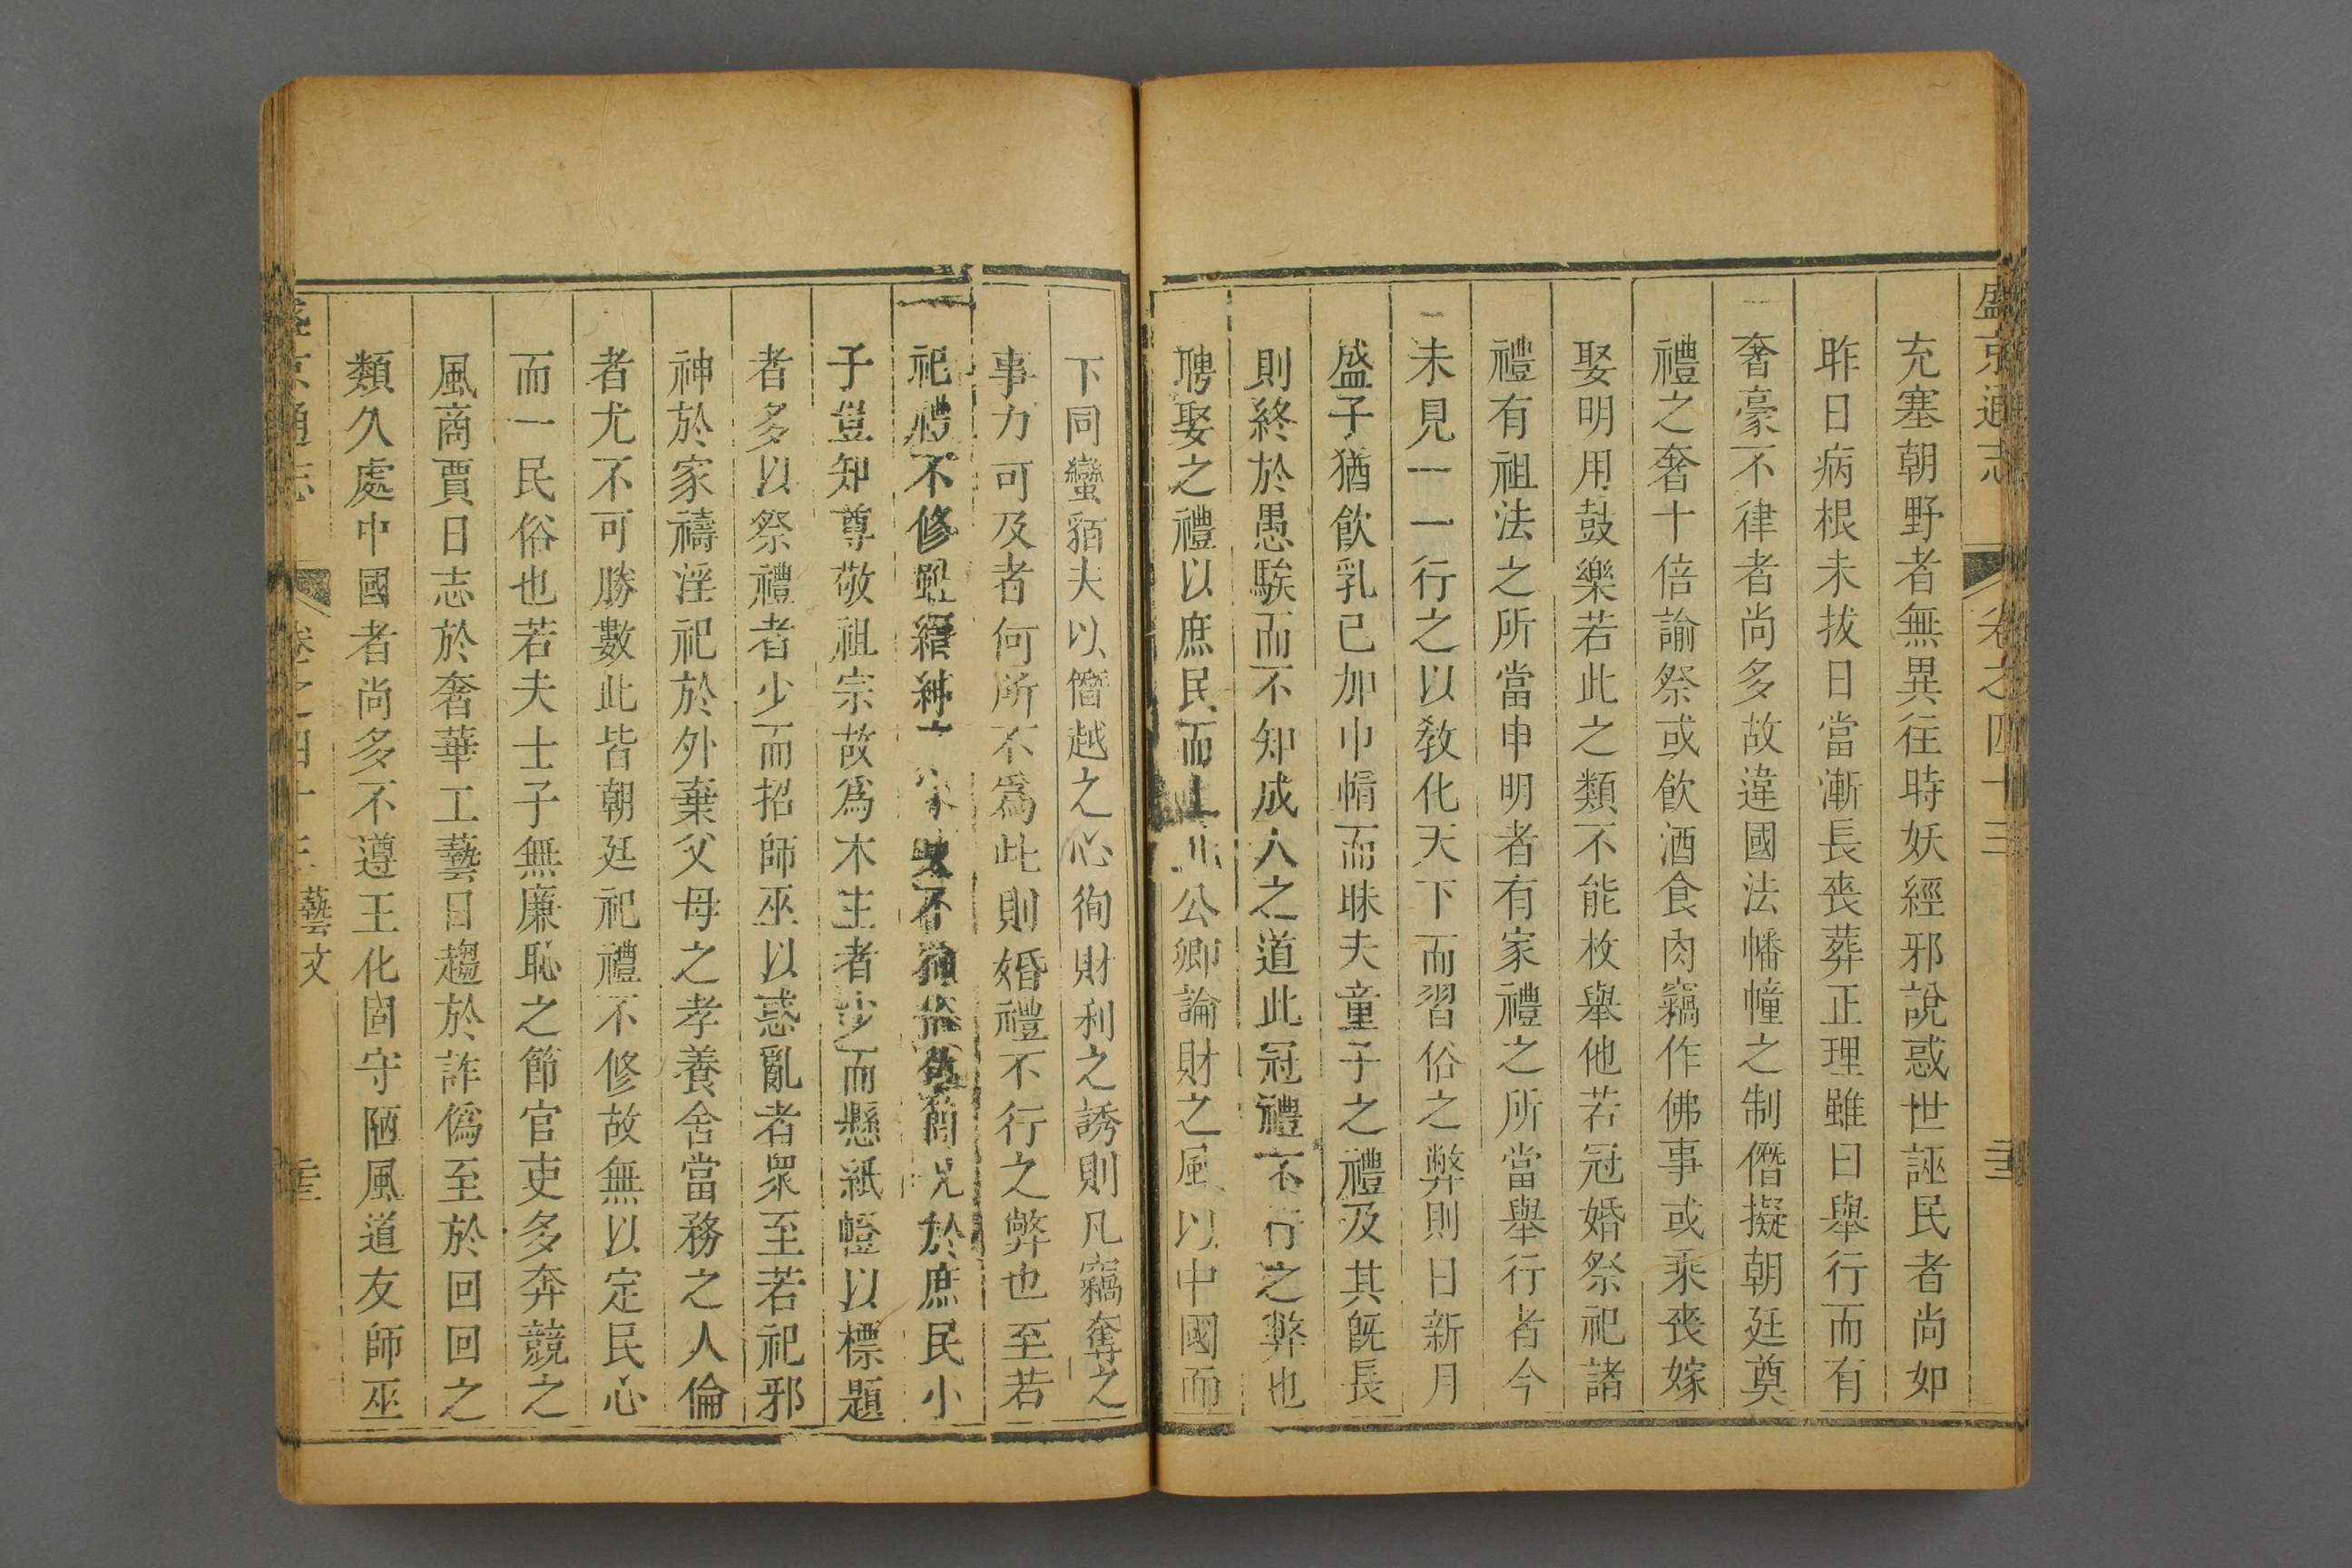 盛京通志 卷之四十三
充塞朝野者無異往時妖經邪說惑世誣民者尚如
昨日病根未拔日當漸長喪葬正理雖曰舉行而有
奢豪不律者尚多故違國法幡幢之制僭擬朝廷奠
禮之奢十倍諭祭或飲酒食肉竊作佛事或乘喪嫁
娶明用鼓樂若此之類不能枚舉他若冠婚祭祀諸
禮有祖法之所當申明者有家禮之所當舉行者今
未見一一行之以敎化天下而習俗之弊則日新月
盛子猶飲乳已加巾幘而昧夫童子之禮及其旣長
則終於愚騃而不知成人之道此冠禮不行之弊也
聘娶之禮以庶民而上公卿論財之風以中國而
下同蠻貊夫以僭越之心徇財利之誘則凡竊奪之
事力可及者何所不爲此則婚禮不行之弊也至若
祀禮不修縉紳於庶民小
子豈知尊敬祖宗故爲木主者少而懸紙幢以標題
者多以祭禮者少而招師巫以惑亂者衆至若祀邪
神於家禱淫祀於外棄父母之孝養舍當務之人倫
者尤不可勝數此皆朝廷祀禮不修故無以定民心
而一民俗也若夫士子無廉恥之節官吏多奔競之
風商賈日志於奢華工藝日趨於詐僞至於回回之
類久處中國者尚多不遵王化固守陋風道友師巫
盛京通志 卷之四十三 藝文